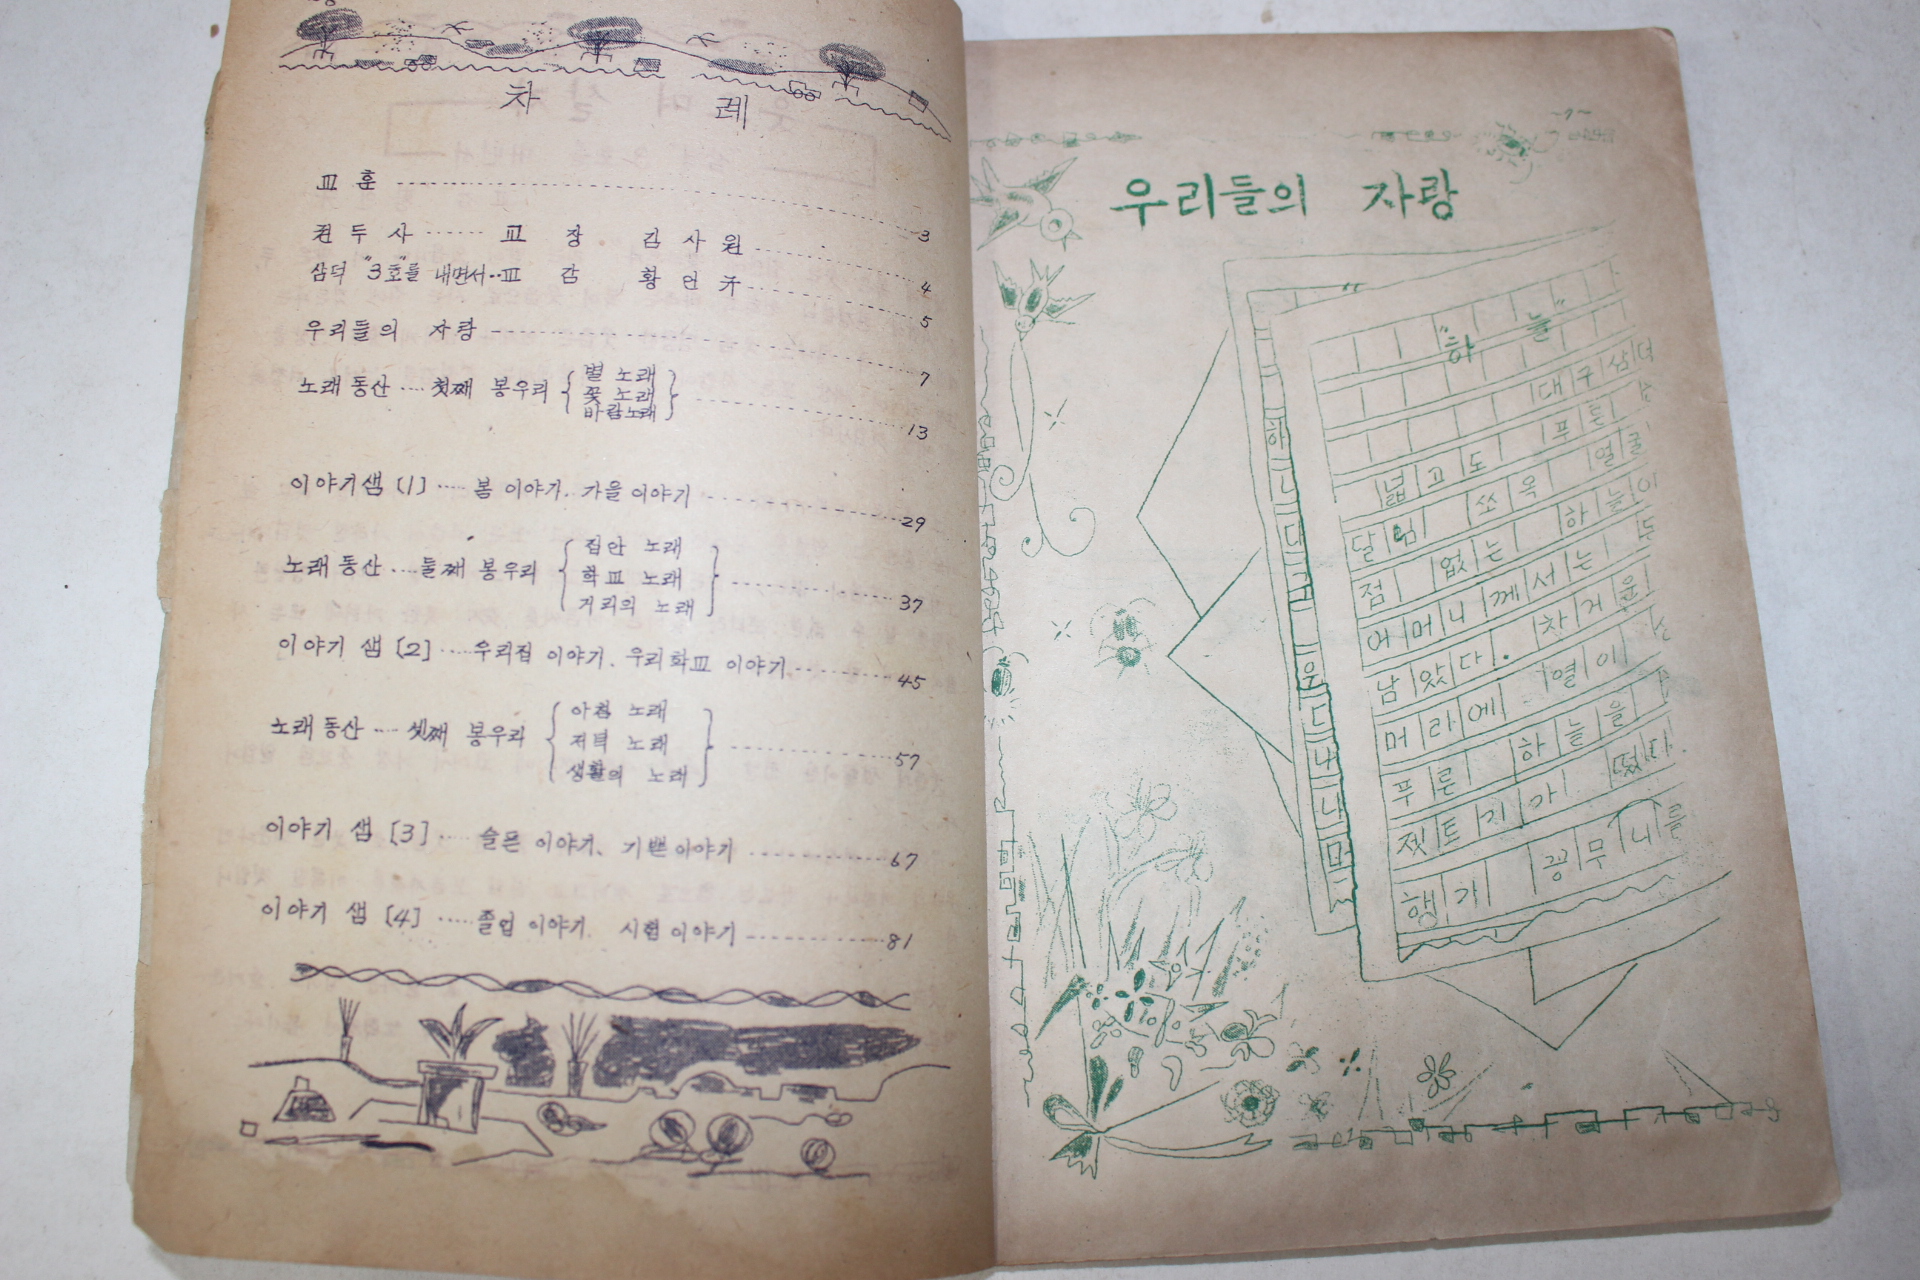 차 레
교 훈 3
권 두 사 ······ 교 장 김 사 원 4
삼덕 "3호"를 내면서··교 감 황 언 5
우리들의 자랑 7
노래 동산 ···· 첫째 봉우리 { 별 노래
꽃 노래
바람노래 } 13
이야기샘 [1] ····· 봄 이야기. 가을 이야기 29
노래 동산 ···· 둘째 봉우리 { 집안 노래
학교 노래
거리의 노래 } 37
이야기 샘 [2] ····· 우리집 이야기. 우리학교 이야기 45
노래 동산 ···· 셋째 봉우리 { 아침 노래
저녁 노래
생활의 노래 } 57
이야기 샘 [3] ····· 슬픈 이야기、 기쁜이야기 67
이야기 샘 [4] ····· 졸업 이야기 시험 이야기 81
-7-
우리들의 자랑
"하 늘"
대구삼덕
넓고도 푸른
달님 쏘옥 얼굴
점 없는 하늘이
어머니께서는
남았다. 차거운
머리에 열이
푸른 하늘을
젯트기가 떴다.
행기 꽁무니를